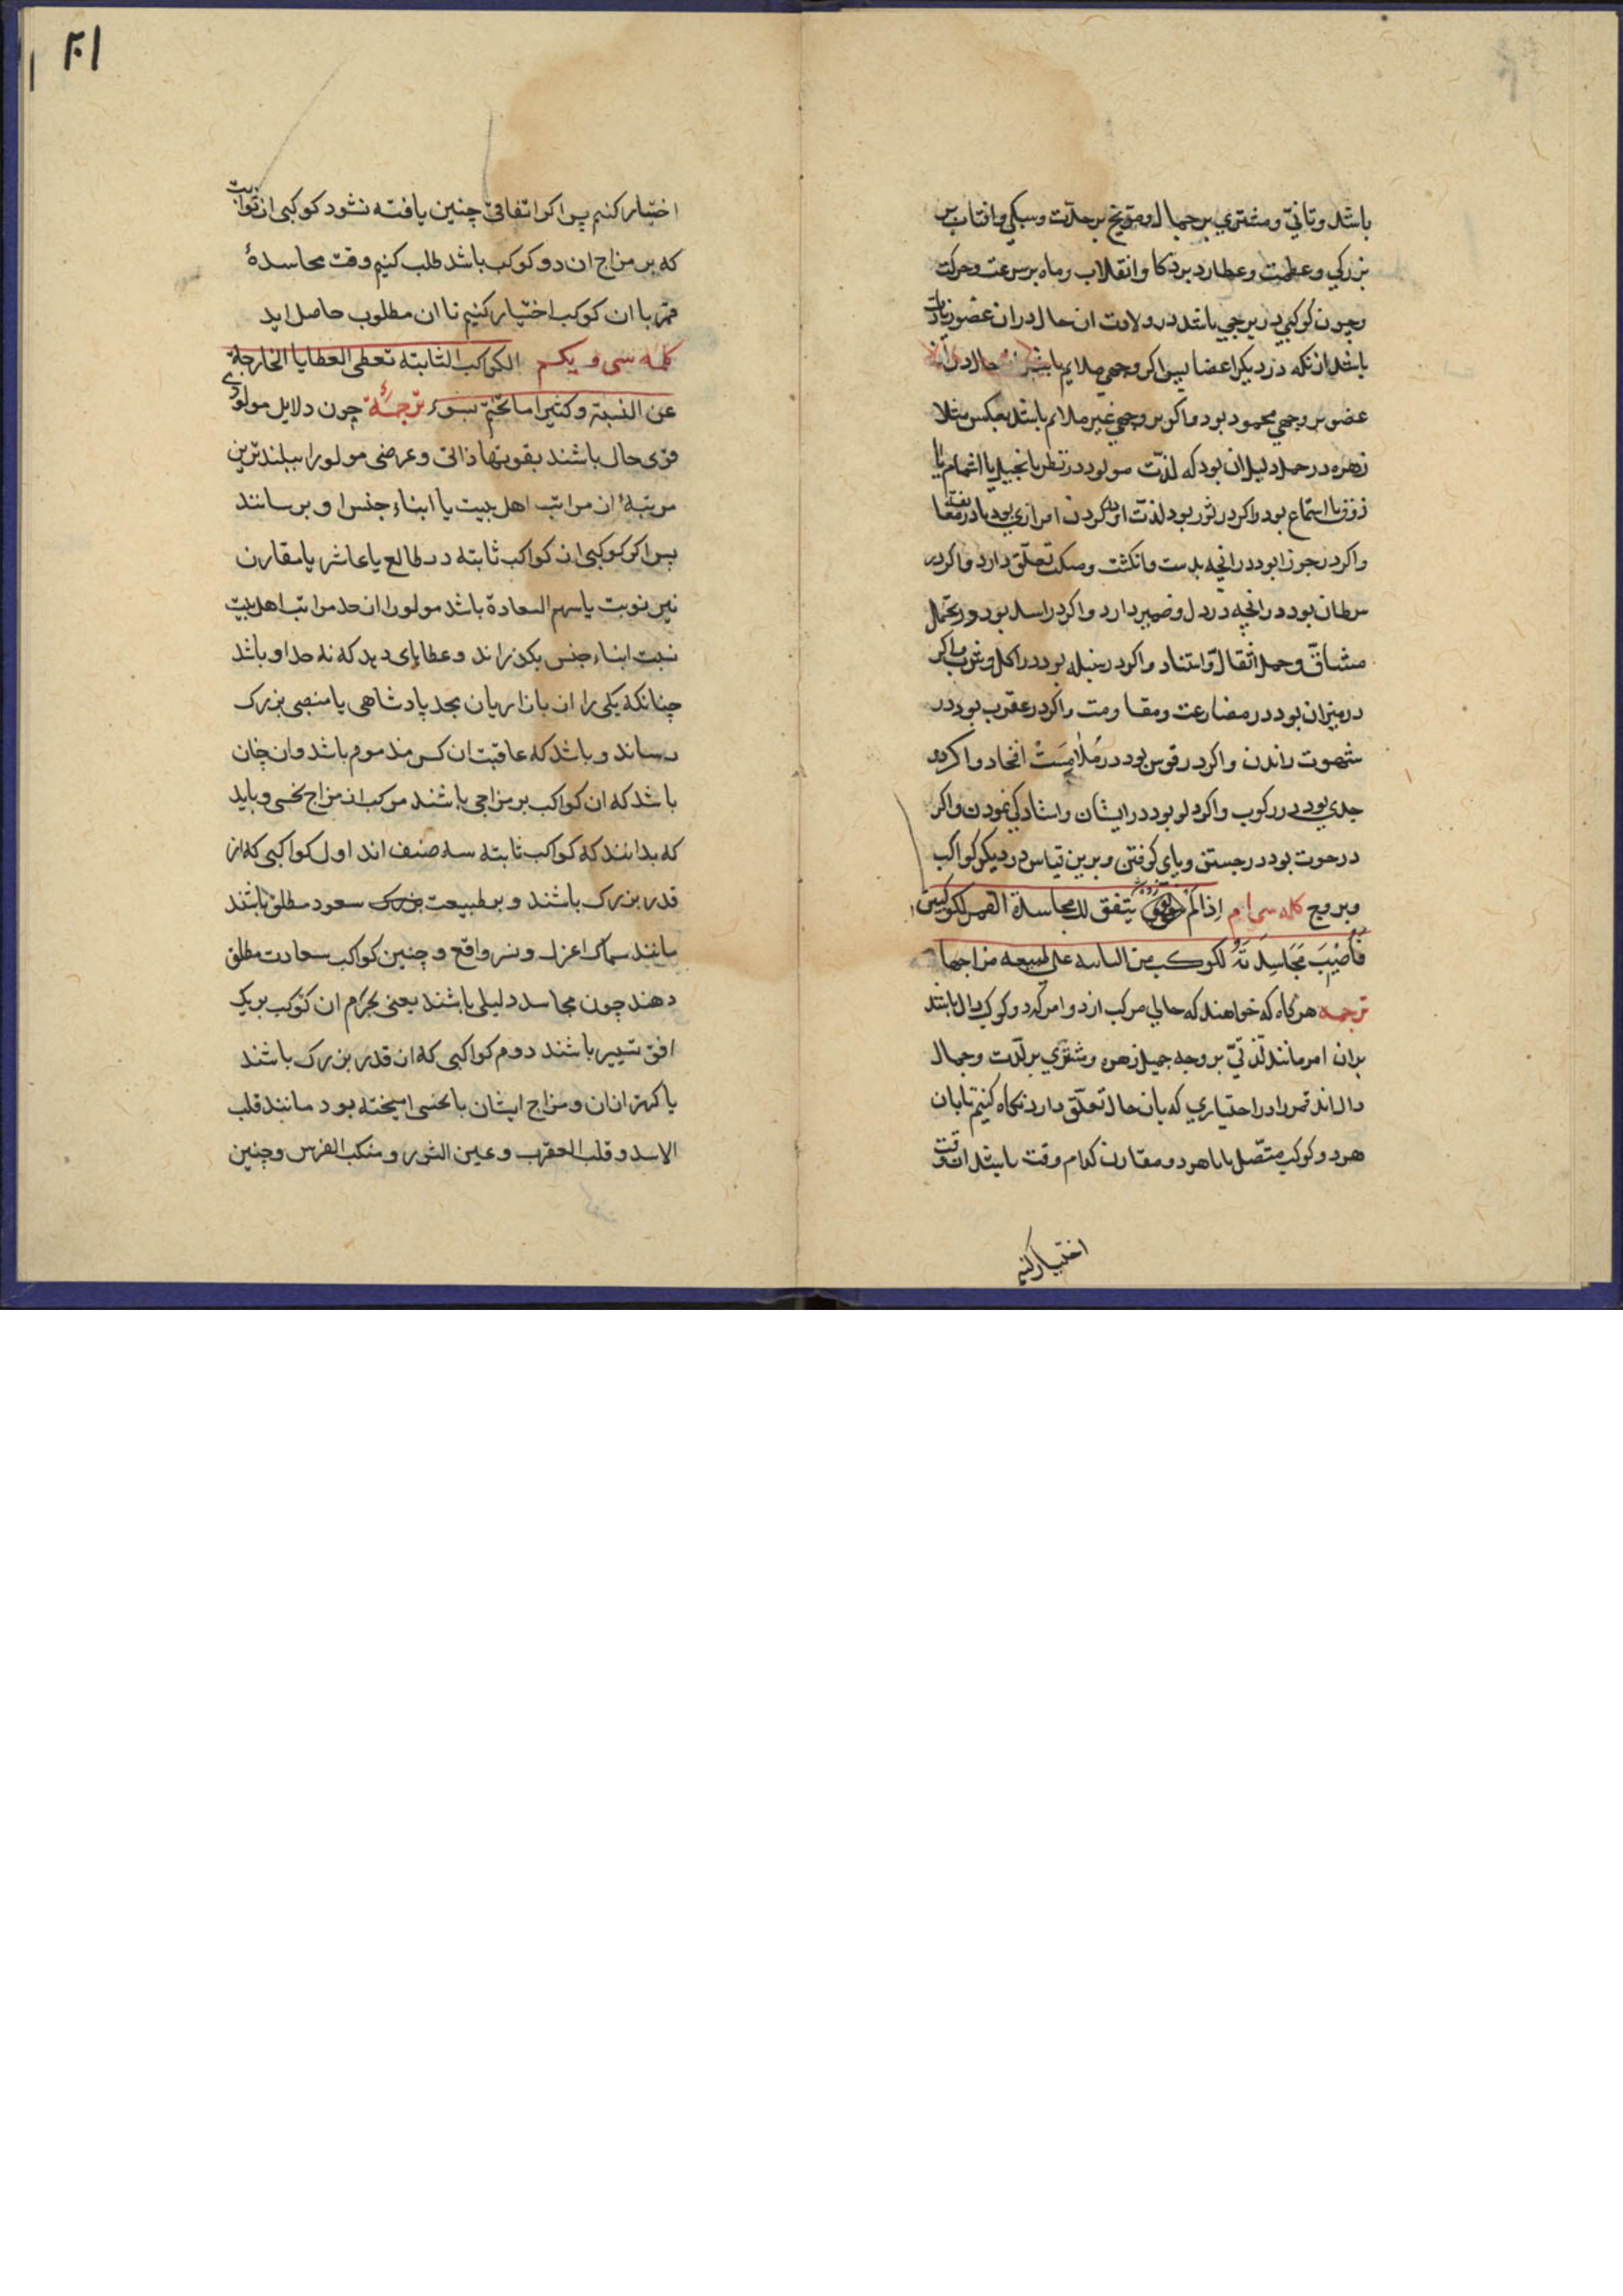 باشد و تانی و مشتری بر جمال و مریخ بر حدّت و سبکی و افتاب بر
بزرکی و عظمت و عطارد بر ذکا و انقلاب و ماه بر سرعت و حرکت
و چون کوکبی در برجی باشد در ولادت ان حال در ان عضو زیادت
باشد از آنکه در دیکر اعضا پس اکر وجهی ملایم باشد حال در ان
عضو بر وجهی محمود بود و اکر بر وجهی غیر ملایم باشد بعکس مثلا
زهره در حمل دلیل ان بود که لذّت مولود در نظر یا تخییل یا اشمام یا
ذوق یا استماع بود و اکر در ثور بود لذت او در کردن امرازی بود یا در معانقه
و اکر در جوزا بود در انچه بدست و انکشت و مسکت تعلّق دارد و اکر در
سرطان بود در انچه در دل و ضمیر دارد و اکر در اسد بود در تحمّل
مشاقّ و حمل اثقال و استناد و اکر در سنبله بود در اکل و شرب و اکر
در میزان بود در مضارعت و مقاومت و اکر در عقرب بود در
شهوت راندن و اکر در قوس بود در مُلامِسَتْ افخاد و اکر در
جدی بود در رکوب و اکر در دلو بود در ایشان و استادکی نمودن و اکر
در حوت بود در جستن و پای کوفتن و برین قیاس در دیکر کواکب
و بروج کلمه سی ام اِذا لَمْ یتفق لك مجاسدة القمر لکوکبین
فَاَصْیَبَ مَجَاسِدَتَهُ لکوکب من الثابته علی طبیعه مزاجهما
ترجمه هرکاه که خواهند که حالی مرکب از دو امر که دو کوکب دال باشند
بدان امر مانند لذّتی بر وجه جمیل زهره و مشتری بر لذّت و جمال
دال اند قمر را در اختیاری که بان حال تعلّق دارد نکاه کنیم تا بان
هر دو کوکب متّصل یا با هر دو مقارن کدام وقت باشد ان وقت
اختیار کنیم
۲۰۱
اختیار کنیم پس اکر اتفاقی چنین یافته نشود کوکبی از ثوابت
که بر مزاج ان دو کوکب باشد طلب کنیم وقت مجاسدهٔ
قمر با ان کوکب اختیار کنیم تا ان مطلوب حاصل اید
کلمه سی و یکم الکواکب الثابته تعطی العطایا الخارجة
عن النسبة و کثیرا ما تختم بسوء ترجمهٔ چون دلایل مولودی
قوی حال باشند بقوتهاء ذاتی و عرضی مولود را ببلندترین
مرتبهٔ از مراتب اهل بیت یا ابناء جنس او برسانند
پس اکر کوکبی از کواکب ثابته در طالع یا عاشر یا مقارن
نیّر نوبت یا سهم السعادة باشد مولود را از حد مراتب اهل بیت
نسبت ابناء جنس بکذراند و عطایای دهد که نه حد او باشد
چنانکه یکی را از بازاریان بحد پادشاهی یا منصبی بزرک
رساند و باشد که عاقبت ان کس مذموم باشد و ان چنان
باشد که ان کواکب بر مزاجی باشند مرکب از مزاج نحسی و باید
که بدانند که کواکب ثابته سه صنف اند اول کواکبی که از
قدر بزرک باشند و بر طبیعت سعود مطلق باشند
مانند سماک اعزل و نسر واقع و چنین کواکب سعادت مطلق
دهند چون مجاسد دلیلی باشند یعنی بجرم ان کوکب بر یک
افق تسییر باشند دوم کواکبی که از قدر بزرک باشند
یا کمتر از ان و مزاج ایشان با نحسی امیخته بود مانند قلب
الاسد و قلب العقرب و عین الثور و منکب الفرس و چنین